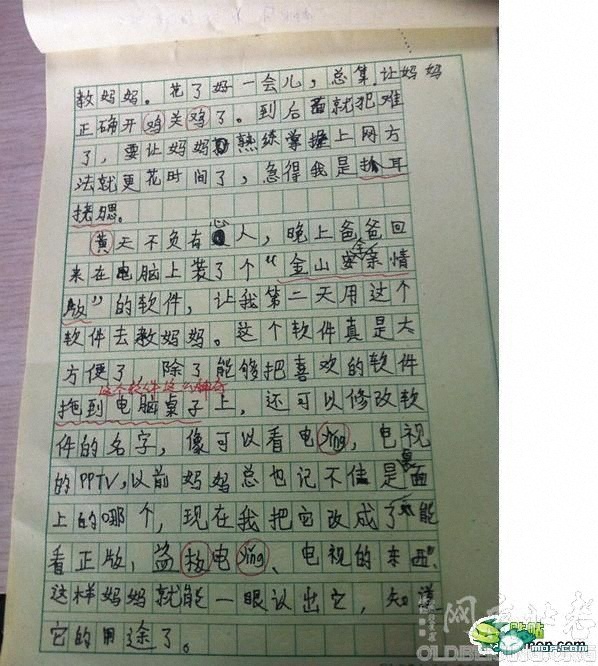 教妈妈。花了好一会儿，总集让妈妈
正确开鸡关鸡了。到后面就犯难
了，要让妈妈熟练掌握上网方
法就更花时间了，急得我是抓耳
挠腮。
黄天不负有心人，晚上爸爸回
来在电脑上装了个“金山安全亲情
版”的软件，让我第二天用这个
软件去教妈妈。这个软件真是太
方便了，除了能够把喜欢的软件
这个软件这么神奇
拖到电脑桌子上，还可以修改软
件的名字，像可以看电ying，电视
的PPTV，以前妈妈总也记不住是桌面
上的哪个，现在我把它改成了不能
看正版，盗板电ying、电视的东西”
这样妈妈就能一眼认出它，知道
它的用途了。